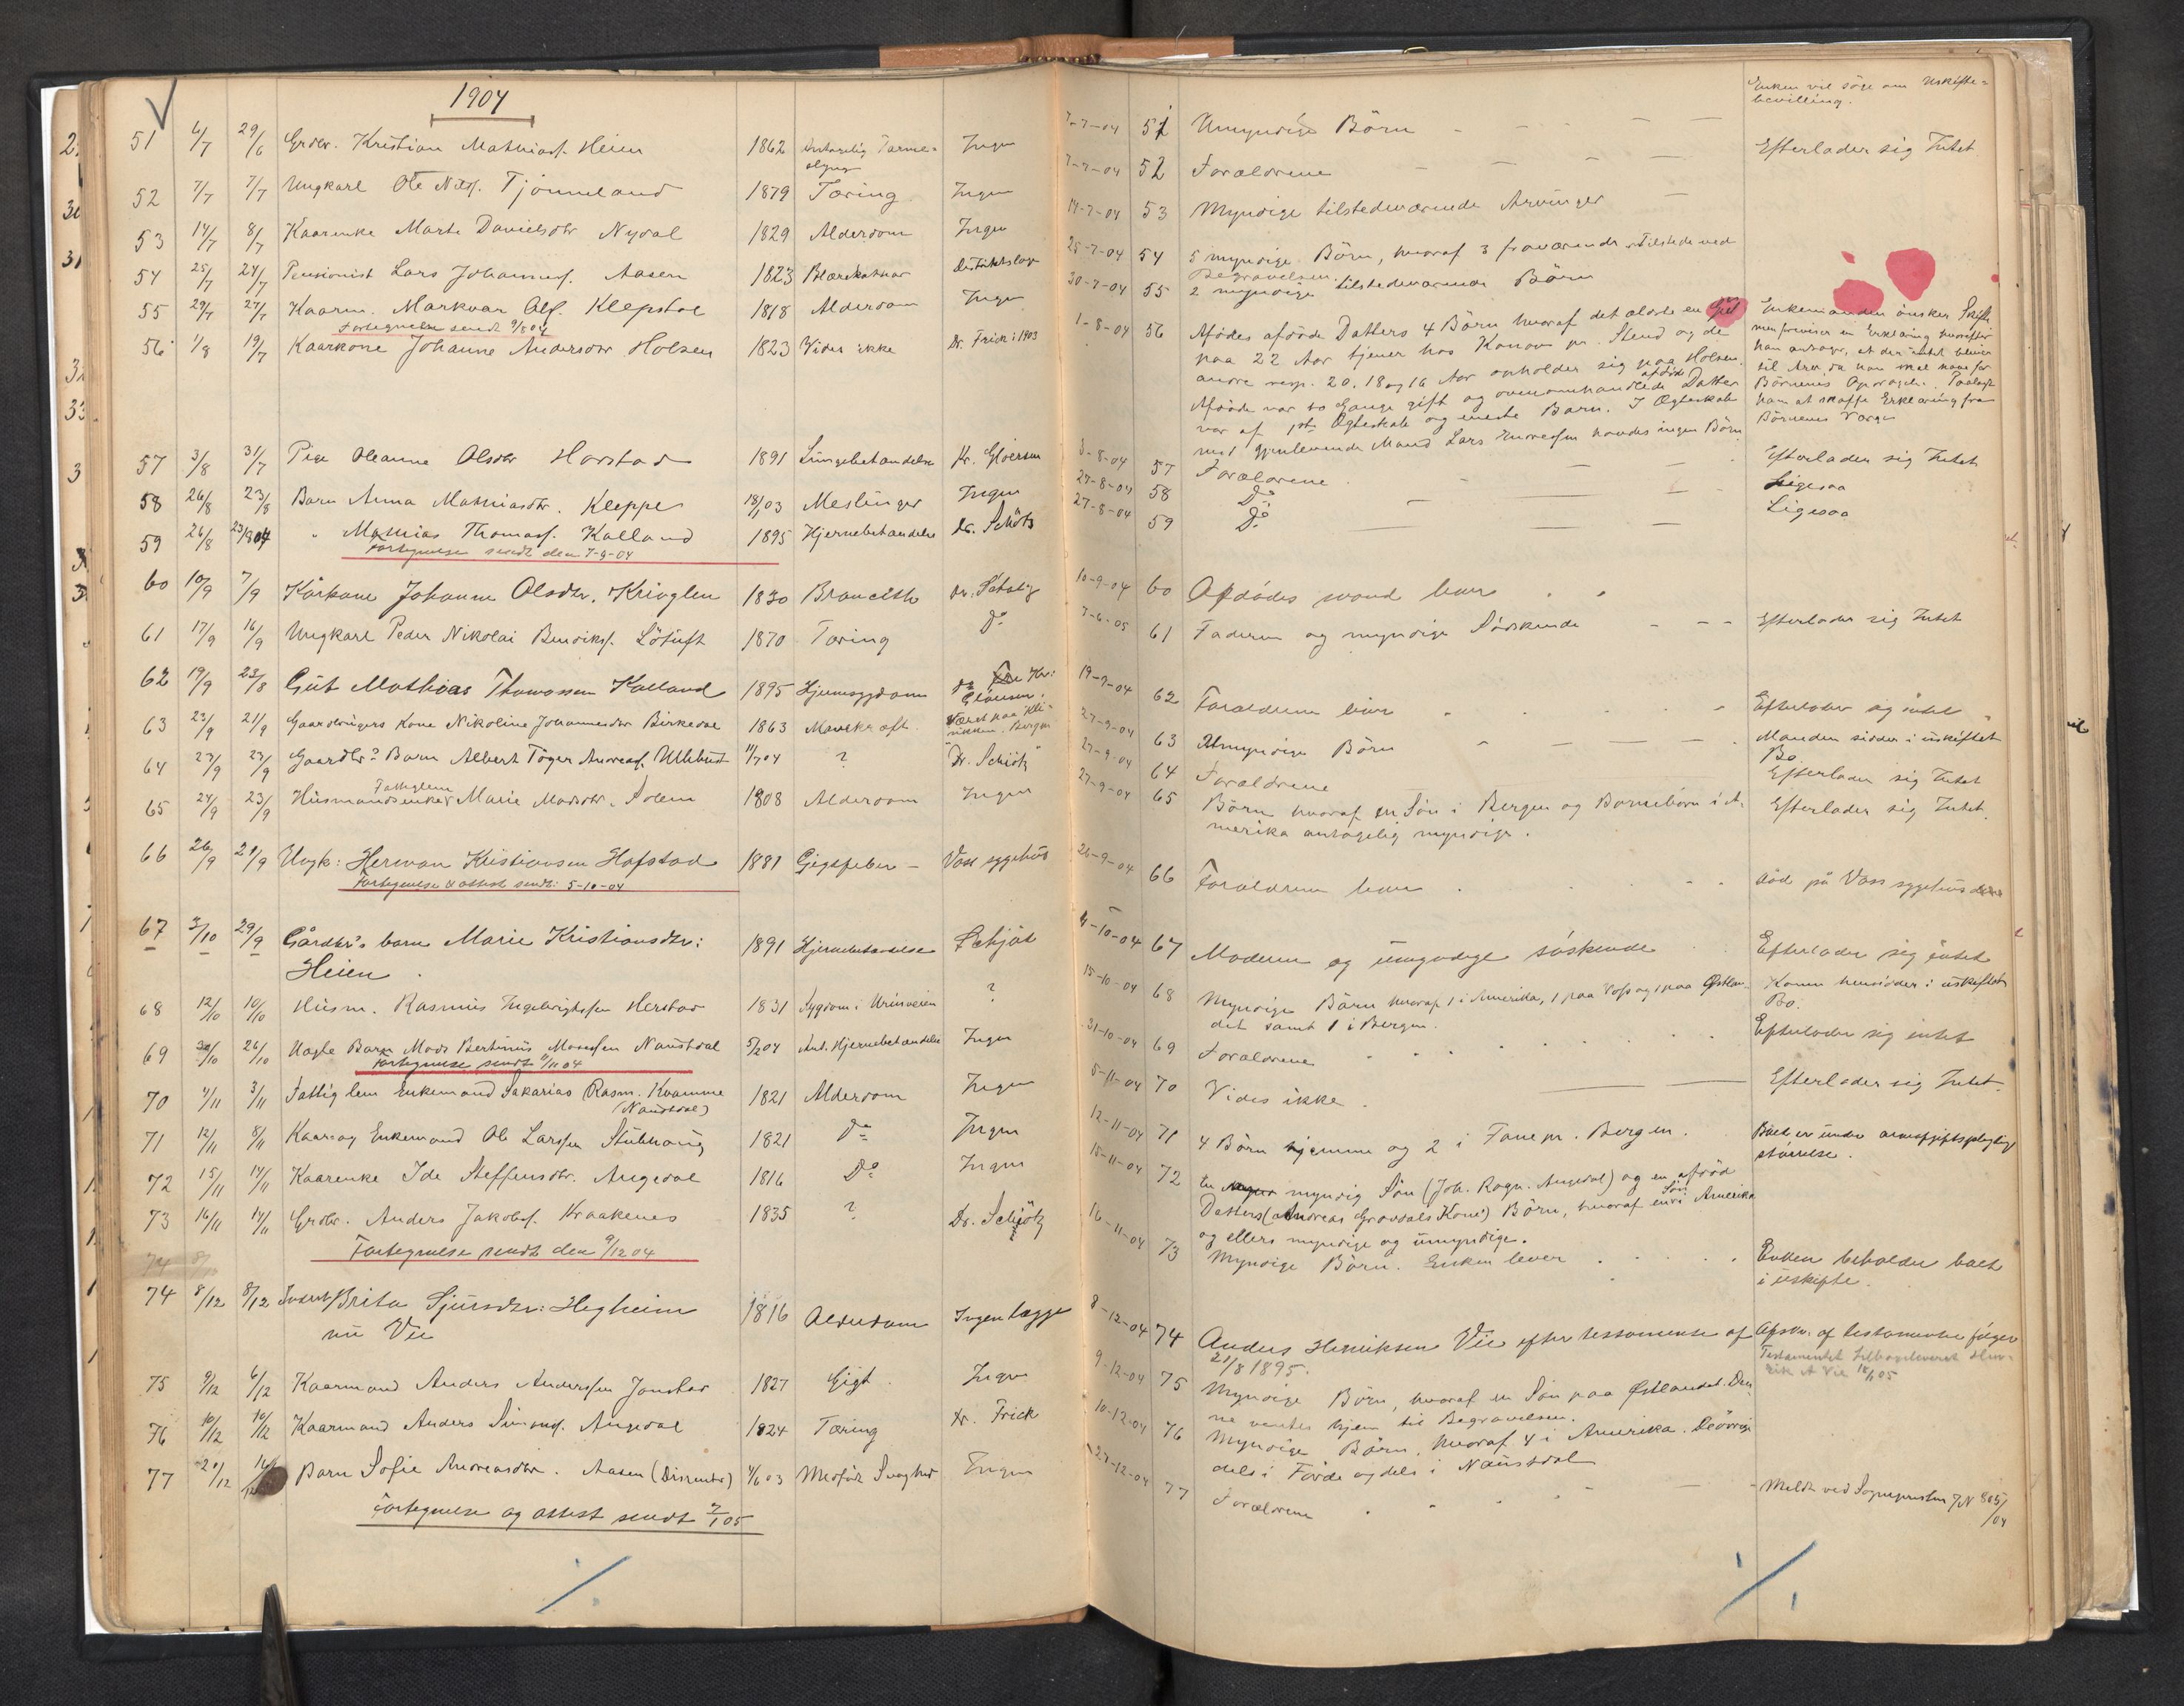 1904
51 6/7 29/6 Grdbr. Kristian Mathiass. Heien 1862 Antagelig Tarme- Ingen
slyng
52 7/7 7/7 Ungkarl Ole Nilss. Tjønneland 1879 Tæring Ingen
53 14/7 8/7 Kaarenke Marte Danielsdtr Nydal 1829 Alderdom Ingen
54 25/7 24/7 Pensionist Lars Johanness. Aasen 1823 Blærekatar Distriktslæge
55 29/7 27/7 Kaarm. Markvar Ols. Klepstol 1818 Alderdom Ingen
Fortegnelse sendt 9/8 04
56 1/8 19/7 Kaarkone Johanne Andersdtr Holsen 1823 Vides ikke Dr. Frick i 1903
57 3/8 31/7 Pige Oleanne Olsdtr Horstad 1891 Lungebetændelse Dr. Gløersen
58 26/8 23/8 Barn Anna Mathiasdtr. Kleppe 18/1 03 Meslinger Ingen
59 26/8 23/8 04 " Mathias Thomass. Kalland 1895 Hjernebetændelse Dr. Schötz
Fortegnelse sendt den 7-9-04
60 10/9 7/9 Kårkone Johanne Olsdtr. Krivglen 1830 Broncith Dr. Schötz
61 17/9 16/9 Ungkarl Peder Nikolai Bendiks. Löfuft 1870 Tæring Do
62 19/9 23/8 Gut Mathias Thomassen Kalland 1895 Hjernesygdom Dr Kr:
Gløersen.
63 23/9 21/9 Gaardbrugers Kone Nikoline Johannesdtr Birkedal 1863 Mavekræft Været paa Kli-
nikken, Bergen
64 27/9 23/9 Gaardbr? Barn Albert Töger Andreas. Ullebust 11/7 04 ? "Dr. Schiötz"
Fattiglem
65 24/9 23/9 Husmandsenke Marie Madsdtr. Solem 1808 Alderdom Ingen
66 26/9 21/9 Ungk: Herman Kristiansen Hofstad 1881 Gigtfeber - Voss sygehus
Fortegnelse & attest sendt: 5-10-04
67 3/10 29/9 Gårdbr's barn Marie Kristiansdtr: 1891 Hjernebetændelse Schjöt
Heien
68 12/10 10/10 Husm. Rasmus Ingebrigtssen Herstad 1831 Sygdom i Urinveien ?
69 30/10 26/10 Uægte Barn Mads Bertinus Monssen Naustdal 5/2 04 Ant. Hjernebetændelse Ingen
Fortegnelse sendt 9/11 04
70 4/11 3/11 Fattiglem Enkemand Sakarias Rasm. Kvamme 1821 Alderdom Ingen
(Naustdal)
71 12/11 8/11 Kaar- og Enkemand Ole Larssen Stubhaug 1821 Do Ingen
72 15/11 14/11 Kaarenke Ide Steffensdtr. Angedal 1816 Do Ingen
73 16/11 14/11 Grdbr. Anders Jakobs. Kraakenes 1835 ? Dr. Schjötz
Fortegnelse sendt den 9/12 04
74 8/12 8/12 Brita Sjursdtr: Hegheim 1816 Alderdom Ingen læge
nu Vie
75 9/12 6/12 Kaarmand Anders Anderssen Jonstad 1827 Gigt Ingen
76 10/12 10/12 Kaarmand Anders Simons. Angedal 1824 Tæring Dr. Frick
77 20/12 Barn Sofie Andreasdtr. Aasen (Dissenter) 4/6 03 Medfødt Svaghed Ingen
Fortegnelse og attest sendt 7/1 05
Enken vil søge om Uskifte-
bevilling.
7-7-04 51 Umyndige Börn
7-7-04 52 Forældrene Efterlader sig Intet
14-7-04 53 Myndige tilstedeværende Arvinger
25-7-04 54 5 myndige Börn, hvoraf 3 fraværende. Tilstede ved
Begravelsen.
30-7-04 55 2 myndige tilstedeværende Börn
1-8-04 56 Afdödes afdöde Datters 4 Börn hvoraf det ældste en Gut
paa 22 Aar tjener hos Konow pr. Stend og de
andre resp. 20, 18 og 16 Aar opholder sig paa Holsen.
Afdöde var to Gange gift og ovenomhandlede afdöde Datter
var af 1ste Ægteskab og eneste Barn. I Ægteskab
med gjenlevende Mand Lars Andressen havdes ingen Börn
Enkemanden önsker Skifte
men foreviser en Erklæring hvorefter
han antager, at der intet bliver
til Arv, da han skal have for
Börnenes Opdragelse. Paalagt
ham at skaffe Erklæring fra
Börnenes Værge
3-8-04 57 Forældrene Efterlader sig Intet
27-8-04 58 Do Ligesaa
27-8-04 59 Do Ligesaa
10-9-04 60 Afdödes mand lever
7-6-05 61 Faderen og myndige Södskende Efterlader sig Intet
19-9-04 62 Forældrene lever Efterlader sig intet
27-9-04 63 Umyndige Börn Manden sidder i uskiftet
Bo
27-9-04 64 Forældrene Efterlader sig Intet
27-9-04 65 Börn hvoraf en Sön i Bergen og Barnebörn i A- Efterlader sig Intet.
merika antagelig myndige.
26-9-04 66 Forældrene lever död på Voss sygehus
4-10-04 67 Moderen og umyndige söskende Efterlader sig intet
15-10-04 68 Myndige Börn hvoraf 1 i Amerika, 1 paa Voss og 1 paa Østlan- Konen hensidder i uskiftet
det samt 1 i Bergen. Bo.
31-10-04 69 Forældrene Efterlader sig intet
5-11-04 70 Vides ikke Efterlader sig Intet.
12-11-04 71 4 Börn hjemme og 2 i Fane pr. Bergen. Boet er under arveafgiftspligtig
störrelse.
15-11-04 72 En myndig Sön (Joh. Ragn. Angedal) og en afdöd
Datters (Andreas Grovdals Kone) Börn, hvoraf en Sön i Amerika
og ellers myndige og umyndige.
16-11-04 73 Myndige Börn. Enken lever Enken beholder boet
i uskifte.
8-12-04 74 Anders Henriksen Vie efter testamente af Afskr. af testamentet fölger
21/8 1895. Testamentet tilbageleveret Hen-
rik A Vie 18/1 05
9-12-04 75 Myndige Börn, hvoraf en Sön paa Østlandet. Den-
ne ventes hjem til Begravelsen.
10-12-04 76 Myndige Börn, hvoraf 4 i Amerika. De övrige
dels i Förde og dels i Naustdal
27-12-04 77 Forældrene Meldt ved Sognepresten JN 805/04